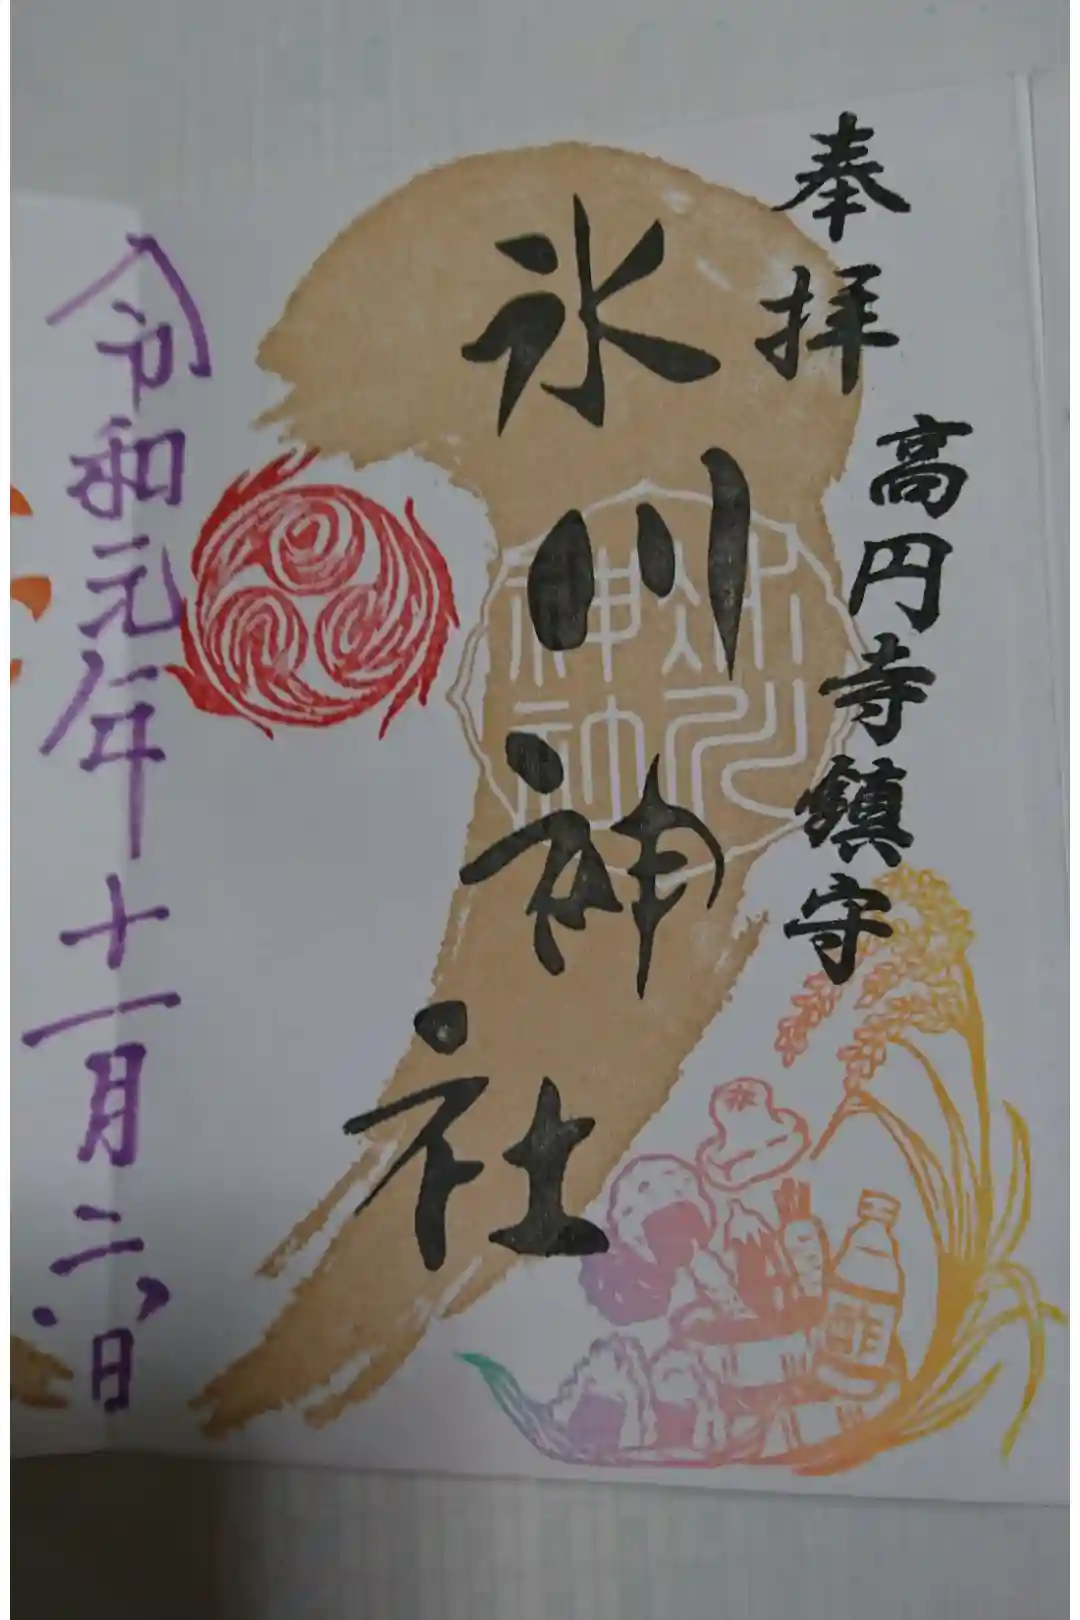 奉拝
高円寺鎮守
氷川神社
氷川
神社
令和元年十一月二六日
氷
酢